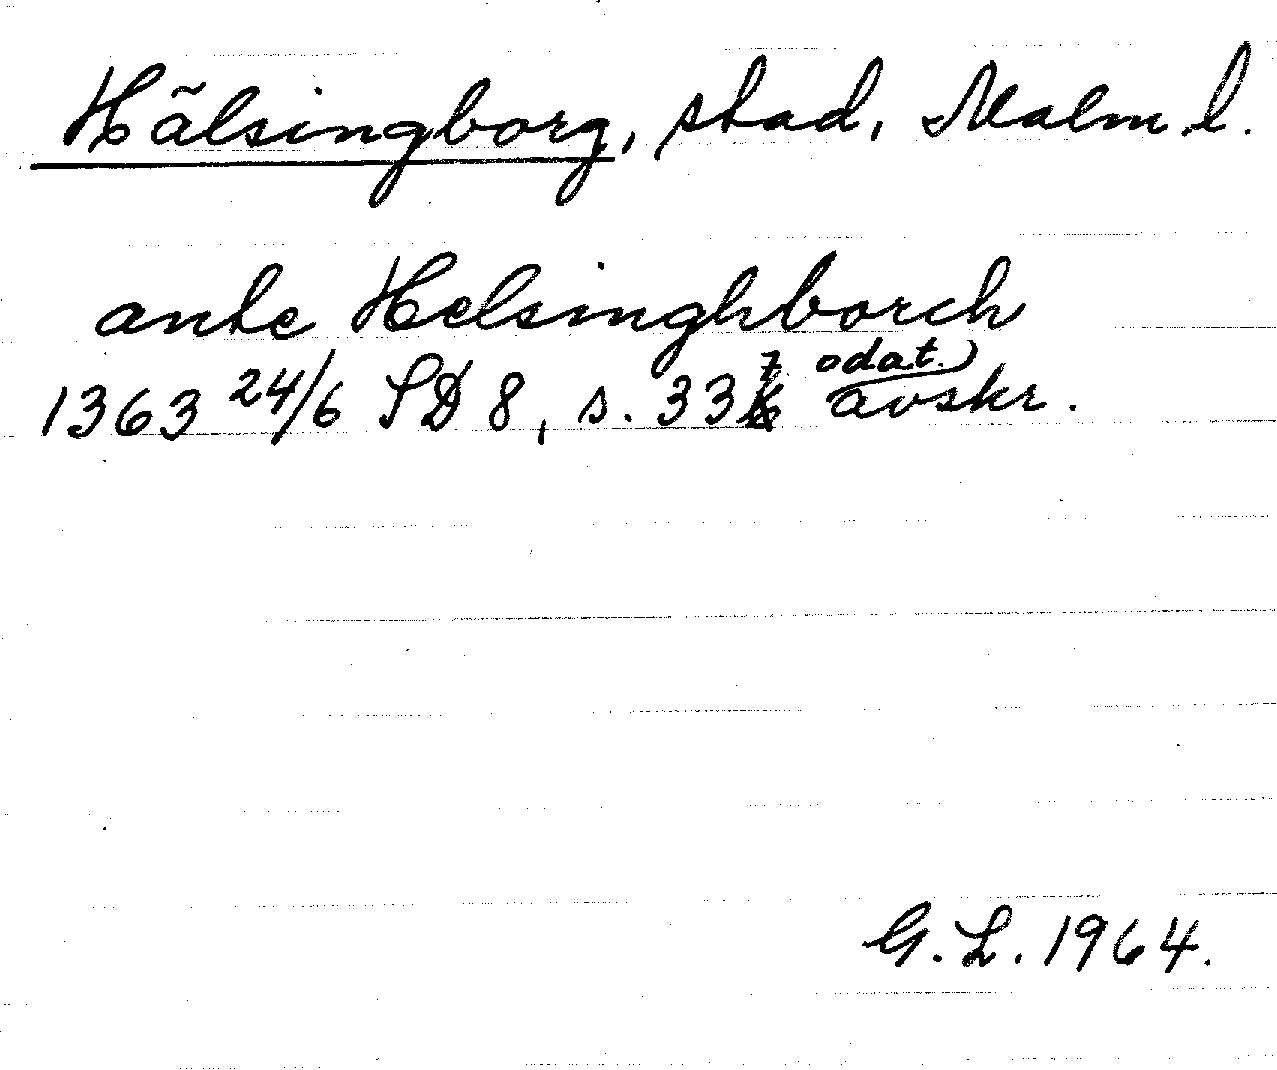 Hälsingborg, stad, Malm.l.
ante Helsinghborch
1363 24/6 SD 8, s. 337 odat. avskr.
G.L. 1964.